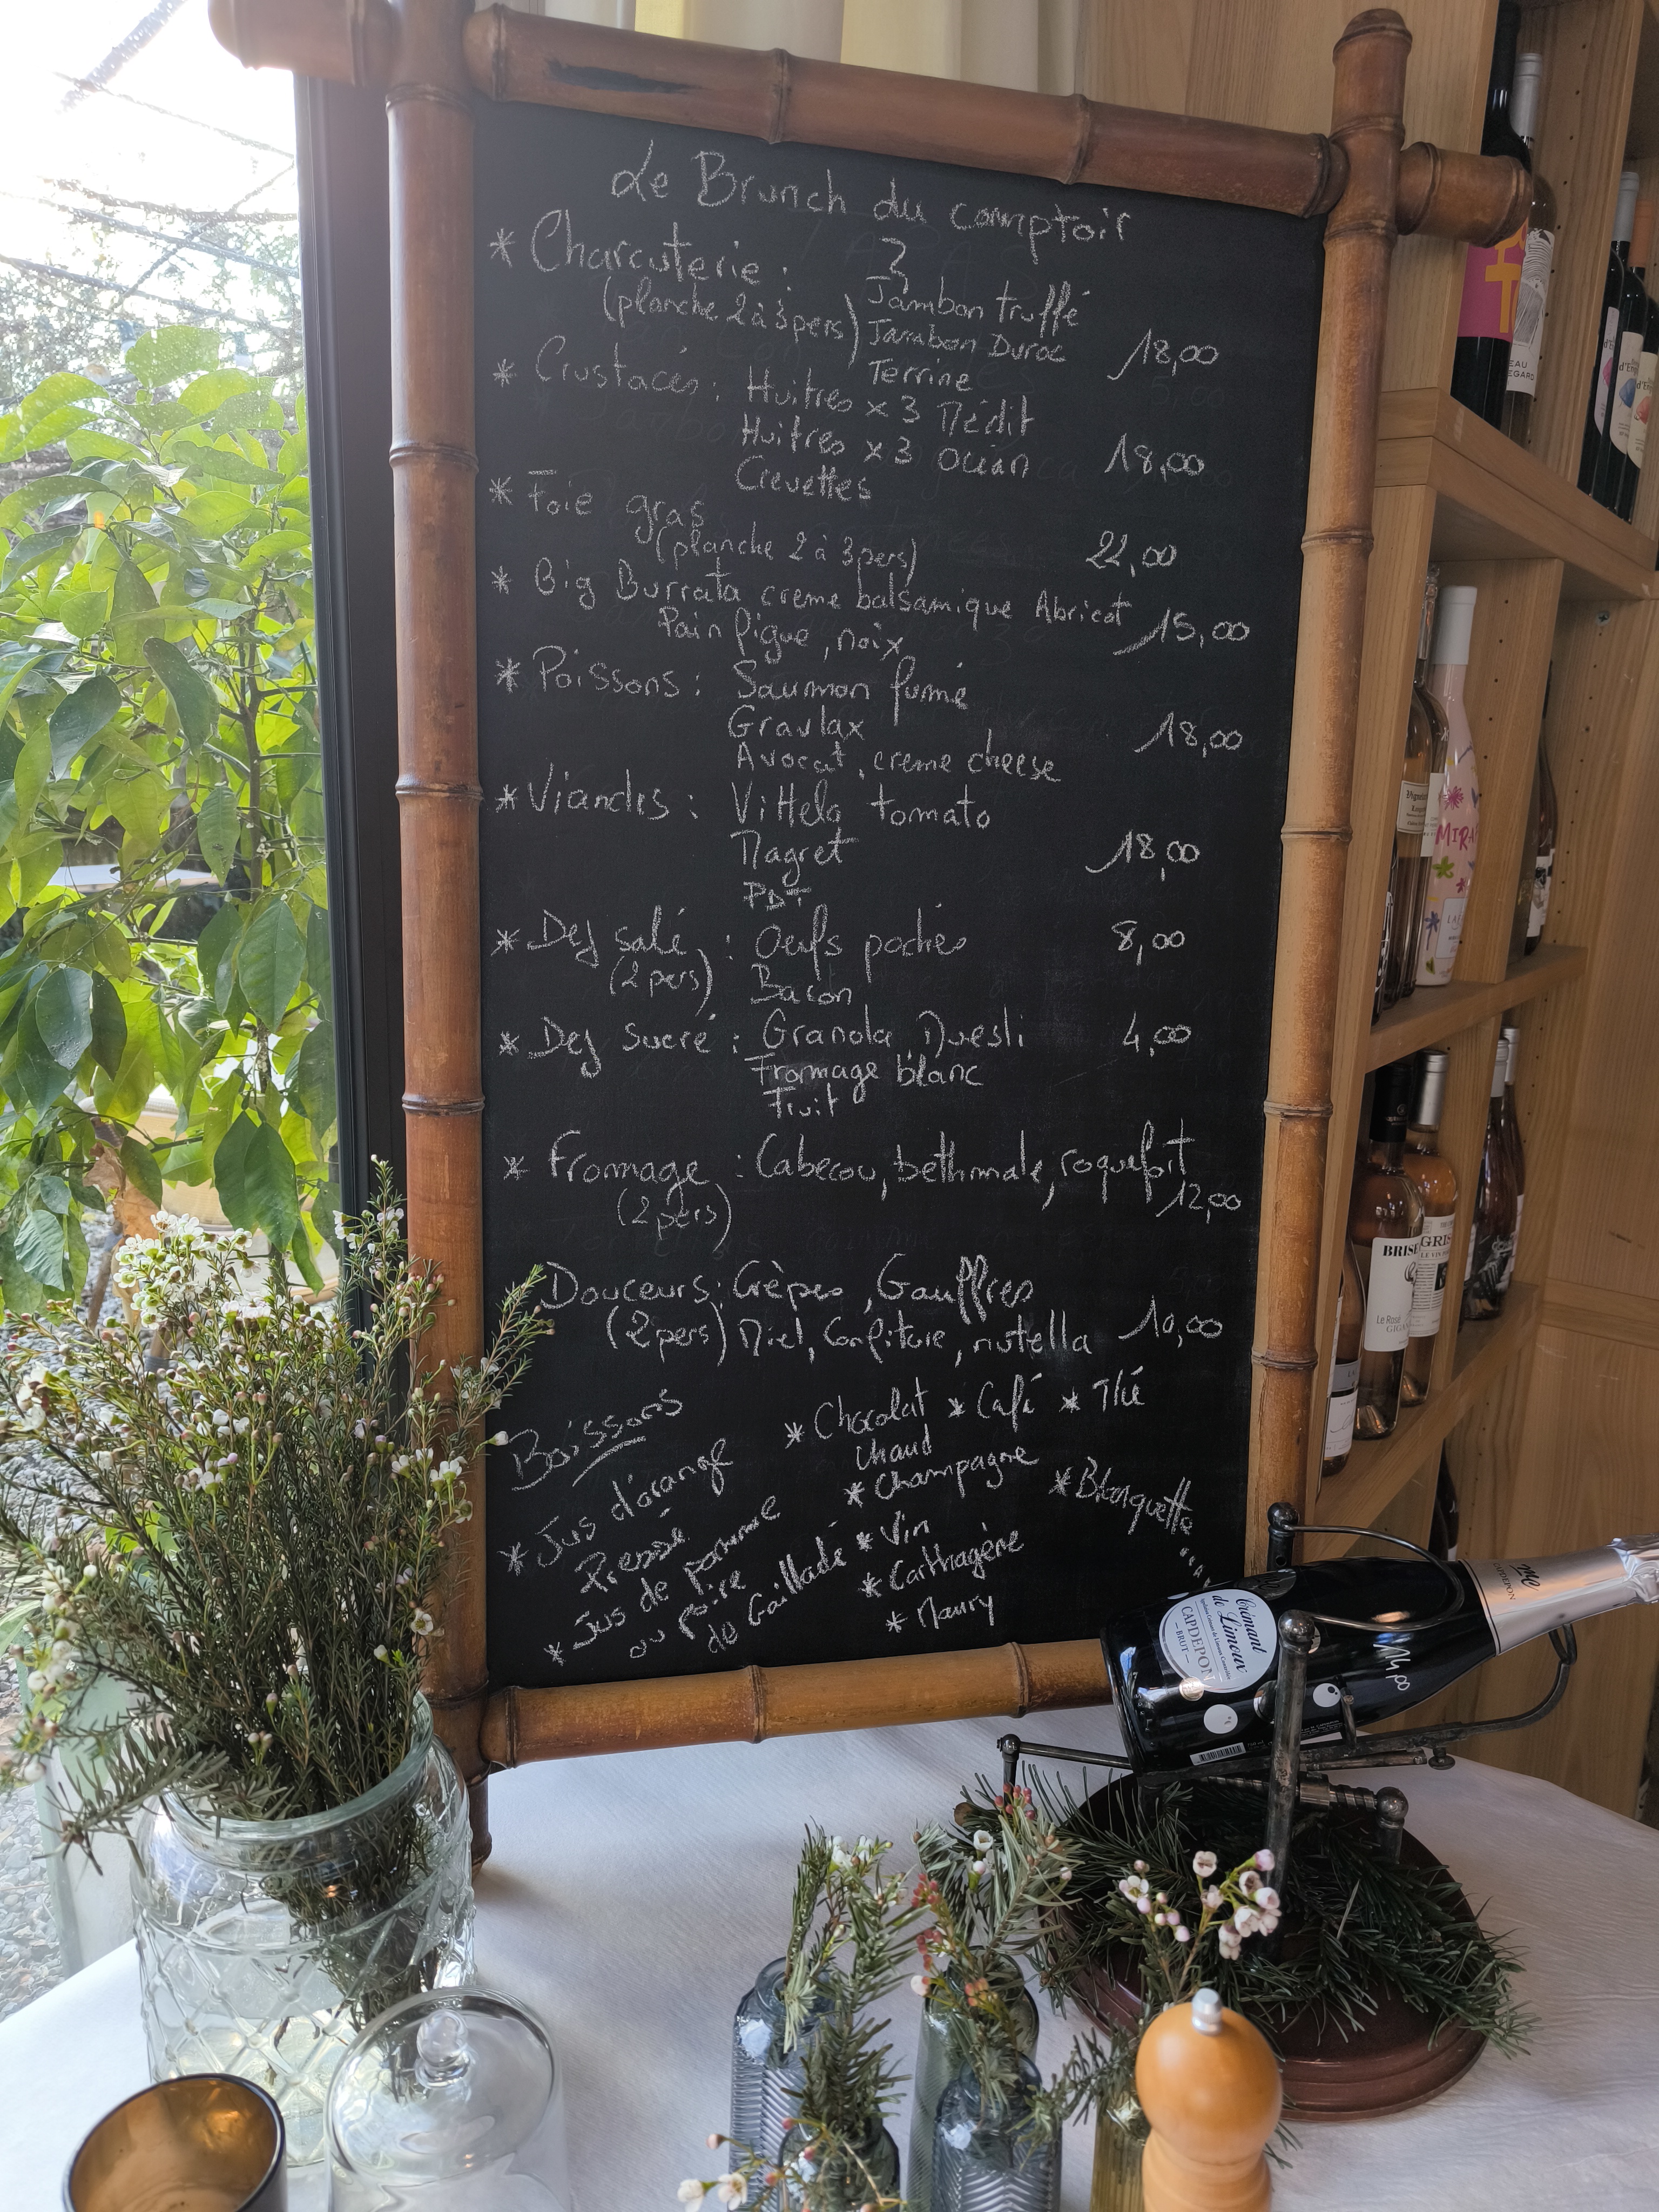 Le Brunch du comptoir
* Charcuterie : 3
(planche 2 à 3 pers) Jambon truffé
Jambon Duroc 18,00
Terrine
* Crustacés : Huitres x 3 Médit
Huitres x 3 océan 18,00
Crevettes
* Foie gras
(planche 2 à 3 pers) 22,00
* Big Burrata creme balsamique Abricot
Pain figue, noix 15,00
* Poissons : Saumon fumé
Gravlax 18,00
Avocat, creme cheese
* Viandes : Vittelo tomato
Magret 18,00
PDT
* Dej salé : Oeufs pochés 8,00
(2 pers) Bacon
* Dej sucré : Granola Muesli 4,00
Fromage blanc
Fruit
* Fromage : Cabecou, bethmale, roquefort
(2 pers) 12,00
Douceurs : Crèpes, Gauffres
(2 pers) Miel, Confiture, nutella 10,00
Boissons
* Jus d'orange
Pressé
* Jus de pomme
ou poire
de Gaillade
* Chocolat chaud
* Café
* Thé
* Champagne
* Blanquette
* Vin
* Carthagène
* Maury
Crémant
de Limoux
CAPDEPON
BRUT
14,00
MIRA
BRISE
Le Rosé
GRIS
LE VIN